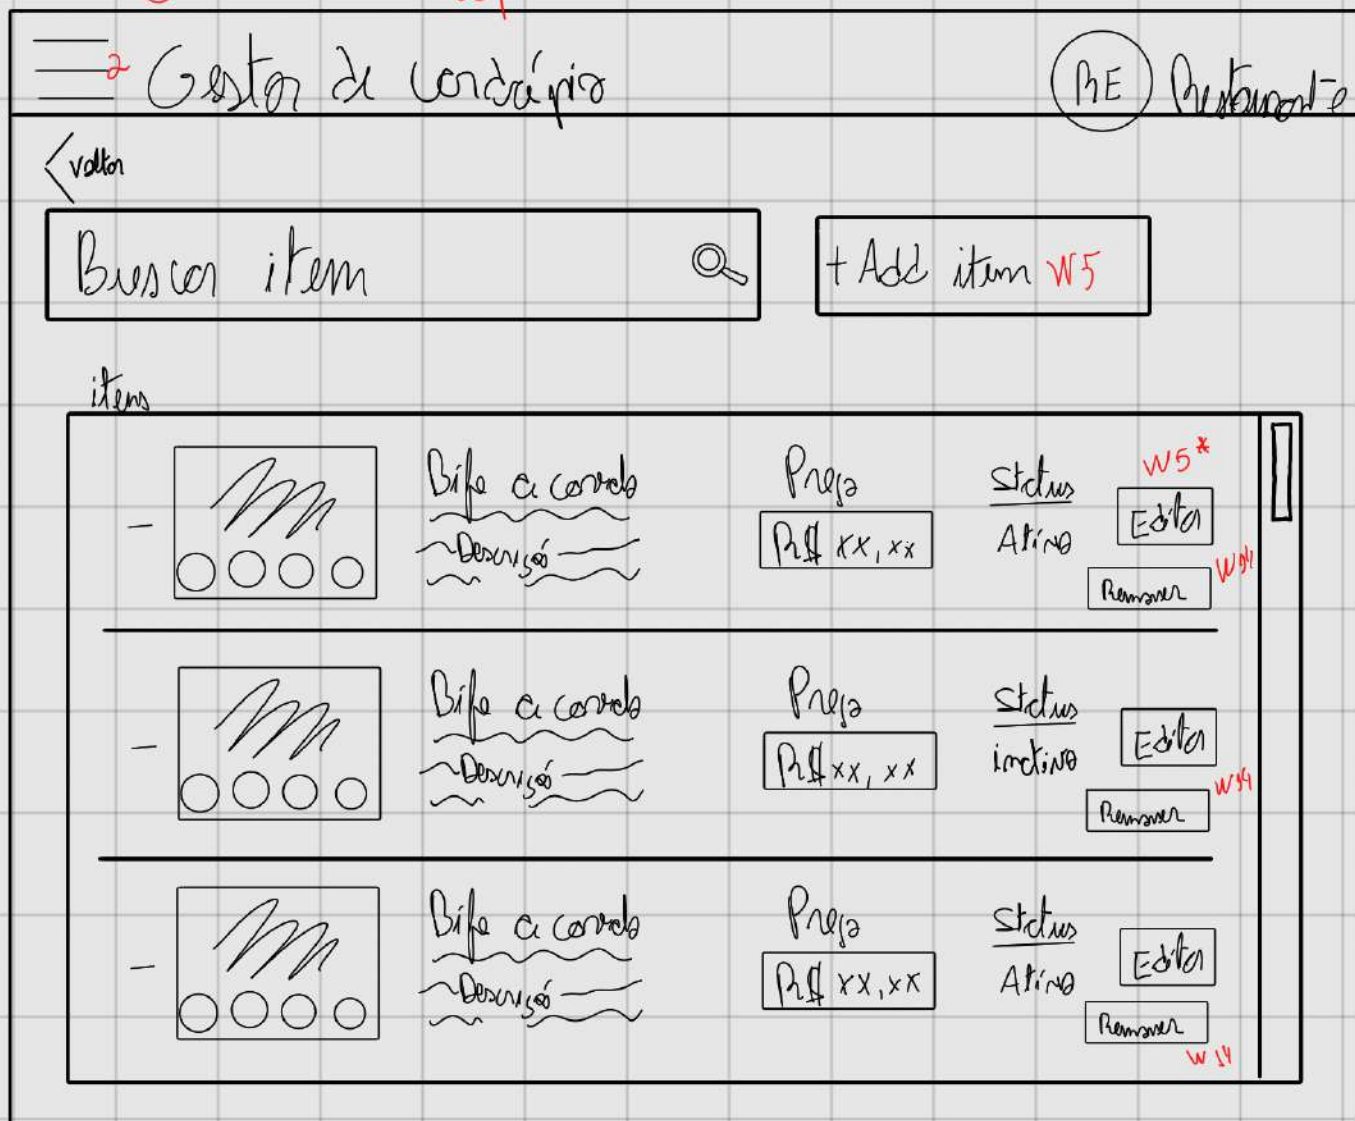 2 Gestor de cardápio
RE Restaurante
voltar
Buscar item
+ Add item W5
itens
Bife a cavalo
Descrição
Preço
R$ xx,xx
Status
Ativo
W5*
Editar
Remover
W14
Bife a cavalo
Descrição
Preço
R$ xx,xx
Status
inativo
Editar
Remover
W14
Bife a cavalo
Descrição
Preço
R$ xx,xx
Status
Ativo
Editar
Remover
W14